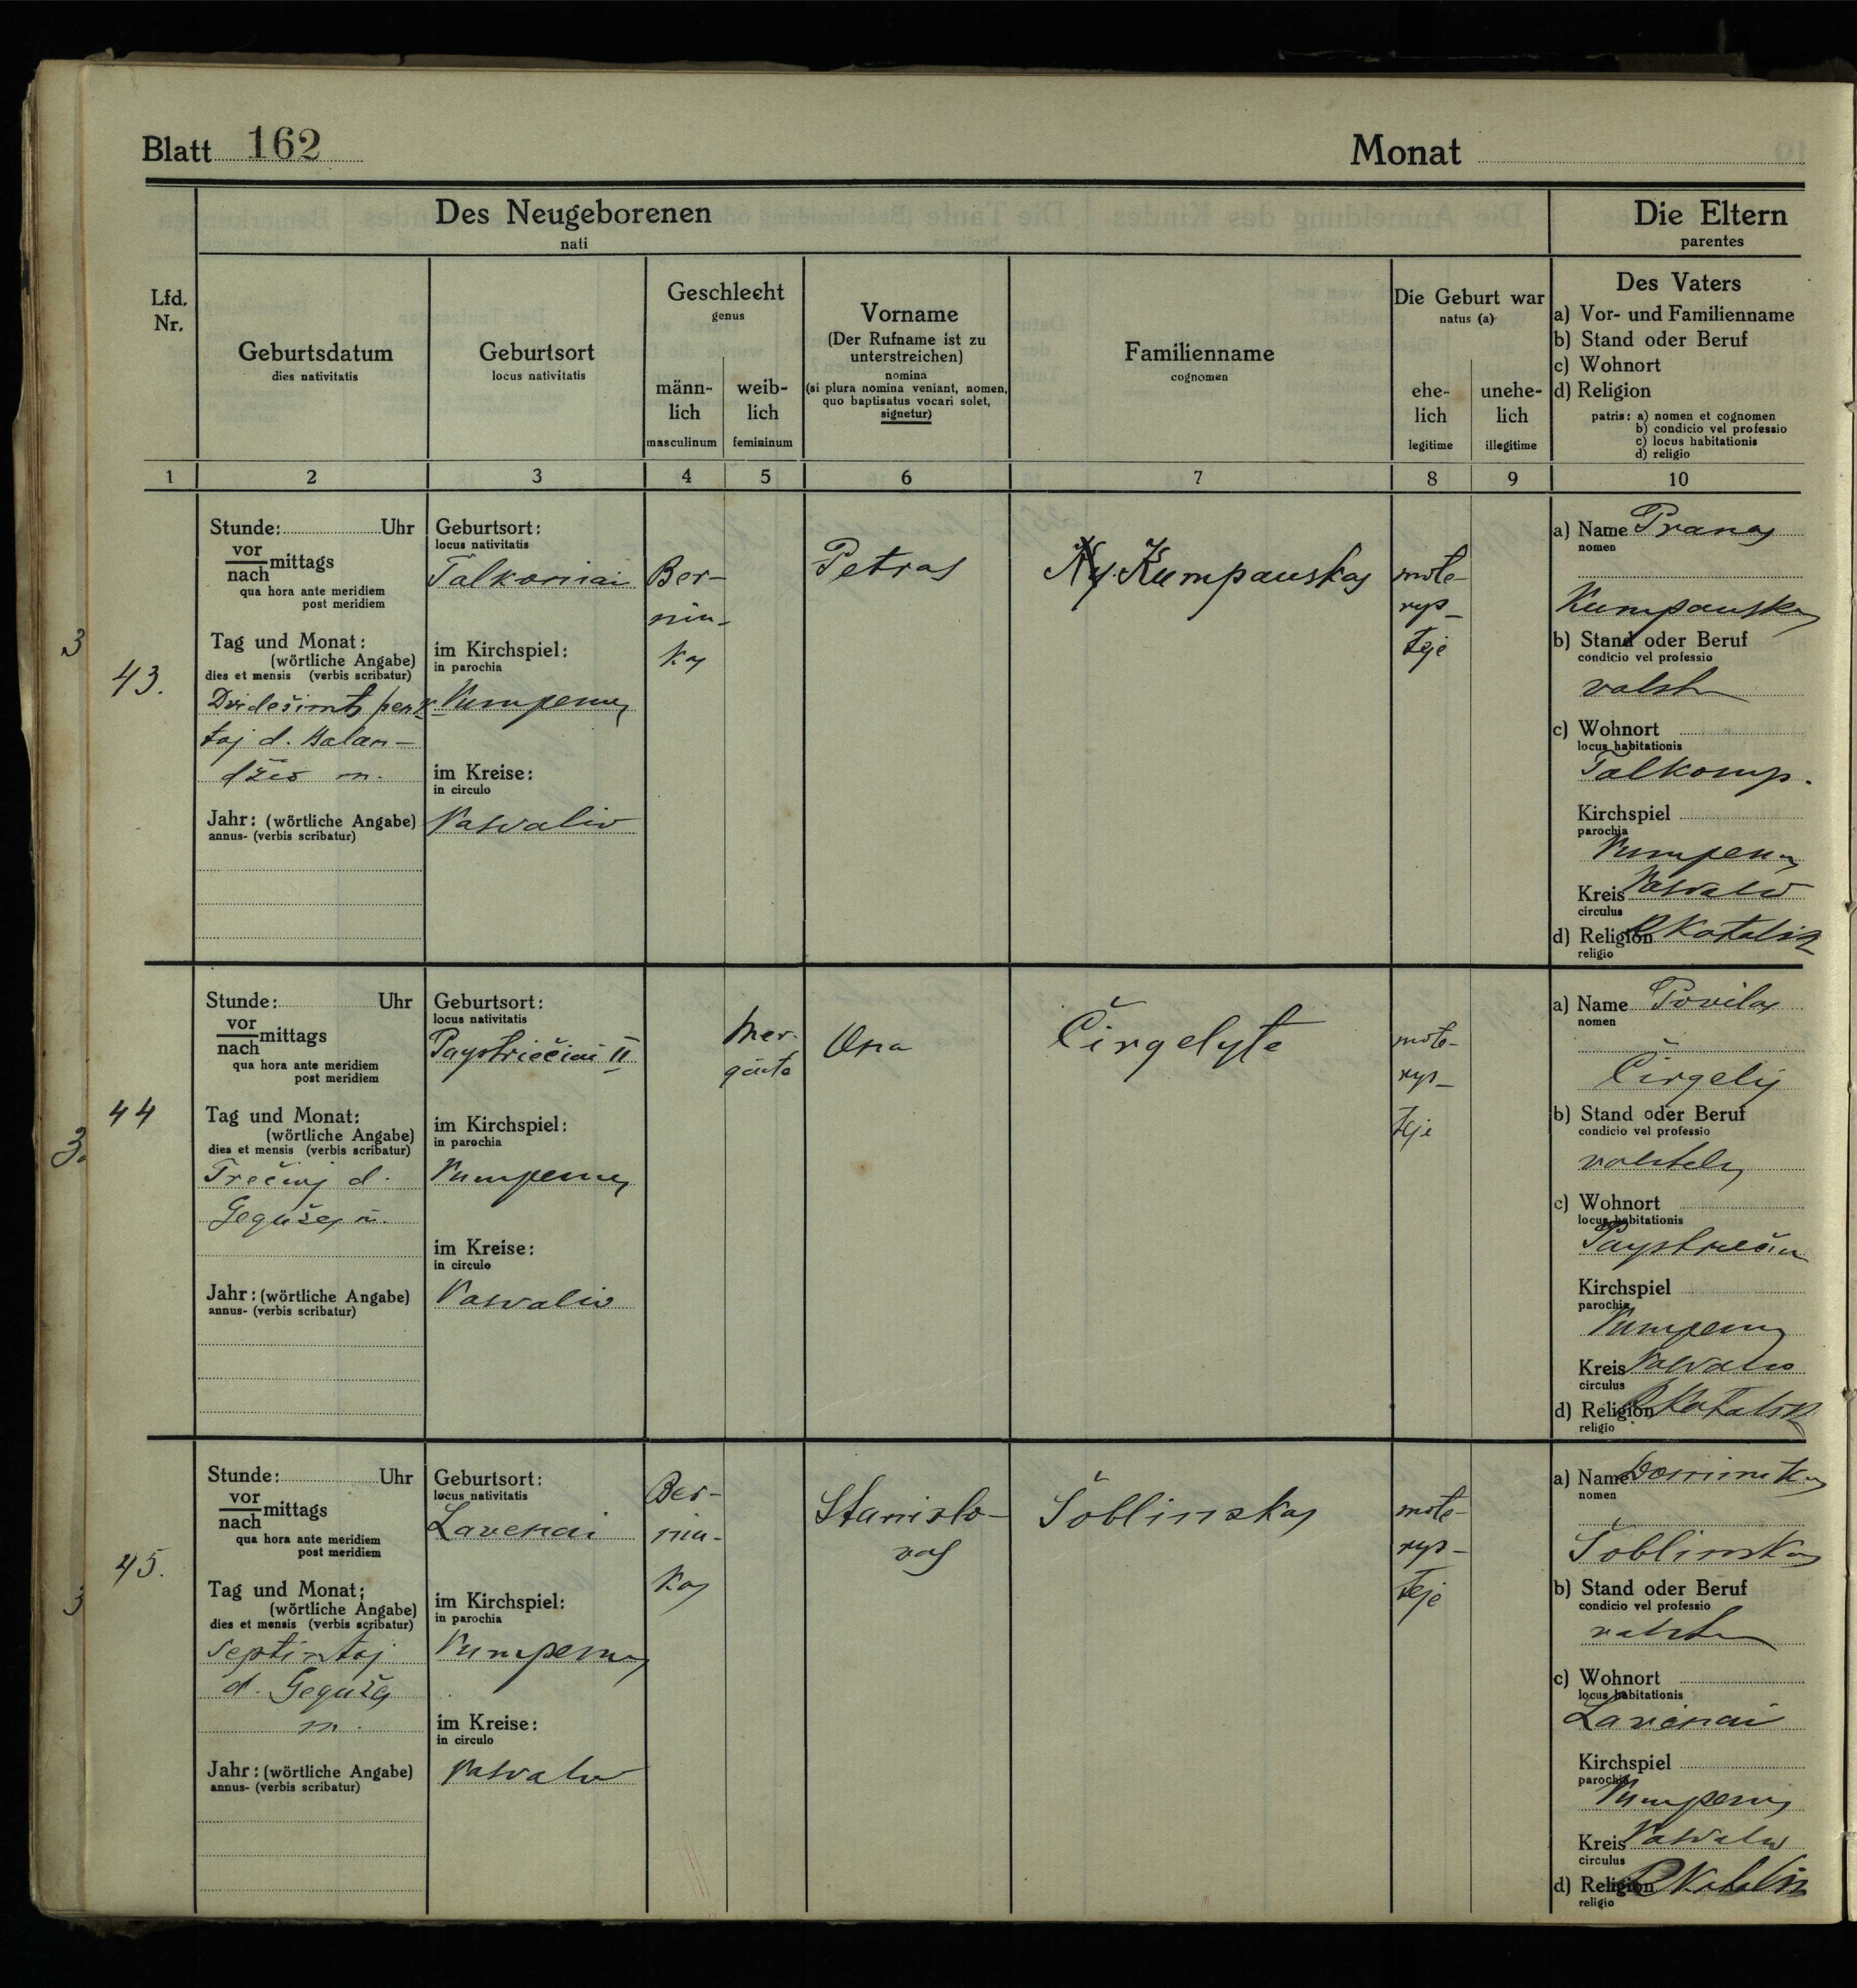 Blatt 162
Monat
Des Neugeborenen
nati
Die Eltern
parentes
Lfd. Nr.
Geburtsdatum
dies nativitatis
Geburtsort
locus nativitatis
Geschlecht
genus
männ-
lich
masculinum
weib-
lich
femininum
Vorname
(Der Rufname ist zu
unterstreichen)
nomina
(si plura nomina veniant, nomen,
quo baptisatus vocari solet,
signetur)
Familienname
cognomen
Die Geburt war
natus (a)
ehe-
lich
legitime
unehe-
lich
illegitime
Des Vaters
a) Vor- und Familienname
b) Stand oder Beruf
c) Wohnort
d) Religion
patris: a) nomen et cognomen
b) condicio vel professio
c) locus habitationis
d) religio
1 2 3 4 5 6 7 8 9 10
3
43.
Stunde: Uhr
vor
nach mittags
qua hora ante meridiem
post meridiem
Tag und Monat:
(wörtliche Angabe)
dies et mensis (verbis scribatur)
Dvidešimts penk-
taj d. Balan-
džio m.
Jahr: (wörtliche Angabe)
annus- (verbis scribatur)
Geburtsort:
locus nativitatis
Talkoniai
im Kirchspiel:
in parochia
Pumpėnų
im Kreise:
in circulo
Pasvalio
Ber-
niu-
kas
Petras
Kumpauskas
mote-
rys-
tėje
a) Name Pranas
nomen
Kumpauskas
b) Stand oder Beruf
condicio vel professio
valst
c) Wohnort
locus habitationis
Kirchspiel
parochia
Pumpėnų
Kreis Pasvalio
circulus
d) Religion R Katalik
religio
44
3.
Stunde: Uhr
vor
nach mittags
qua hora ante meridiem
post meridiem
Tag und Monat:
(wörtliche Angabe)
dies et mensis (verbis scribatur)
Trečiaj d.
Gegužės m.
Jahr: (wörtliche Angabe)
annus- (verbis scribatur)
Geburtsort:
locus nativitatis
Paystriečiai II
im Kirchspiel:
in parochia
Pumpėnų
im Kreise:
in circulo
Pasvalio
Mer-
gaitė
Ona
Čirgelytė
mote-
rys-
tėje
a) Name Povilas
nomen
Čirgelis
b) Stand oder Beruf
condicio vel professio
c) Wohnort
locus habitationis
Kirchspiel
parochia
Pumpėnų
Kreis Pasvalio
circulus
d) Religion R Katalik
religio
45.
3
Stunde: Uhr
vor
nach mittags
qua hora ante meridiem
post meridiem
Tag und Monat;
(wörtliche Angabe)
dies et mensis (verbis scribatur)
Septintaj
d. Gegužės
m.
Jahr: (wörtliche Angabe)
annus- (verbis scribatur)
Geburtsort:
locus nativitatis
Lavenai
im Kirchspiel:
in parochia
Pumpėnų
im Kreise:
in circulo
Pasvalio
Ber-
niu-
kas
Stanislo-
vas
Šoblinskas
mote-
rys-
tėje
a) Name Dominikas
nomen
Šoblinskas
b) Stand oder Beruf
condicio vel professio
valst
c) Wohnort
locus habitationis
Lavenai
Kirchspiel
parochia
Pumpėnų
Kreis Pasvalio
circulus
d) Religion R Katalik
religio